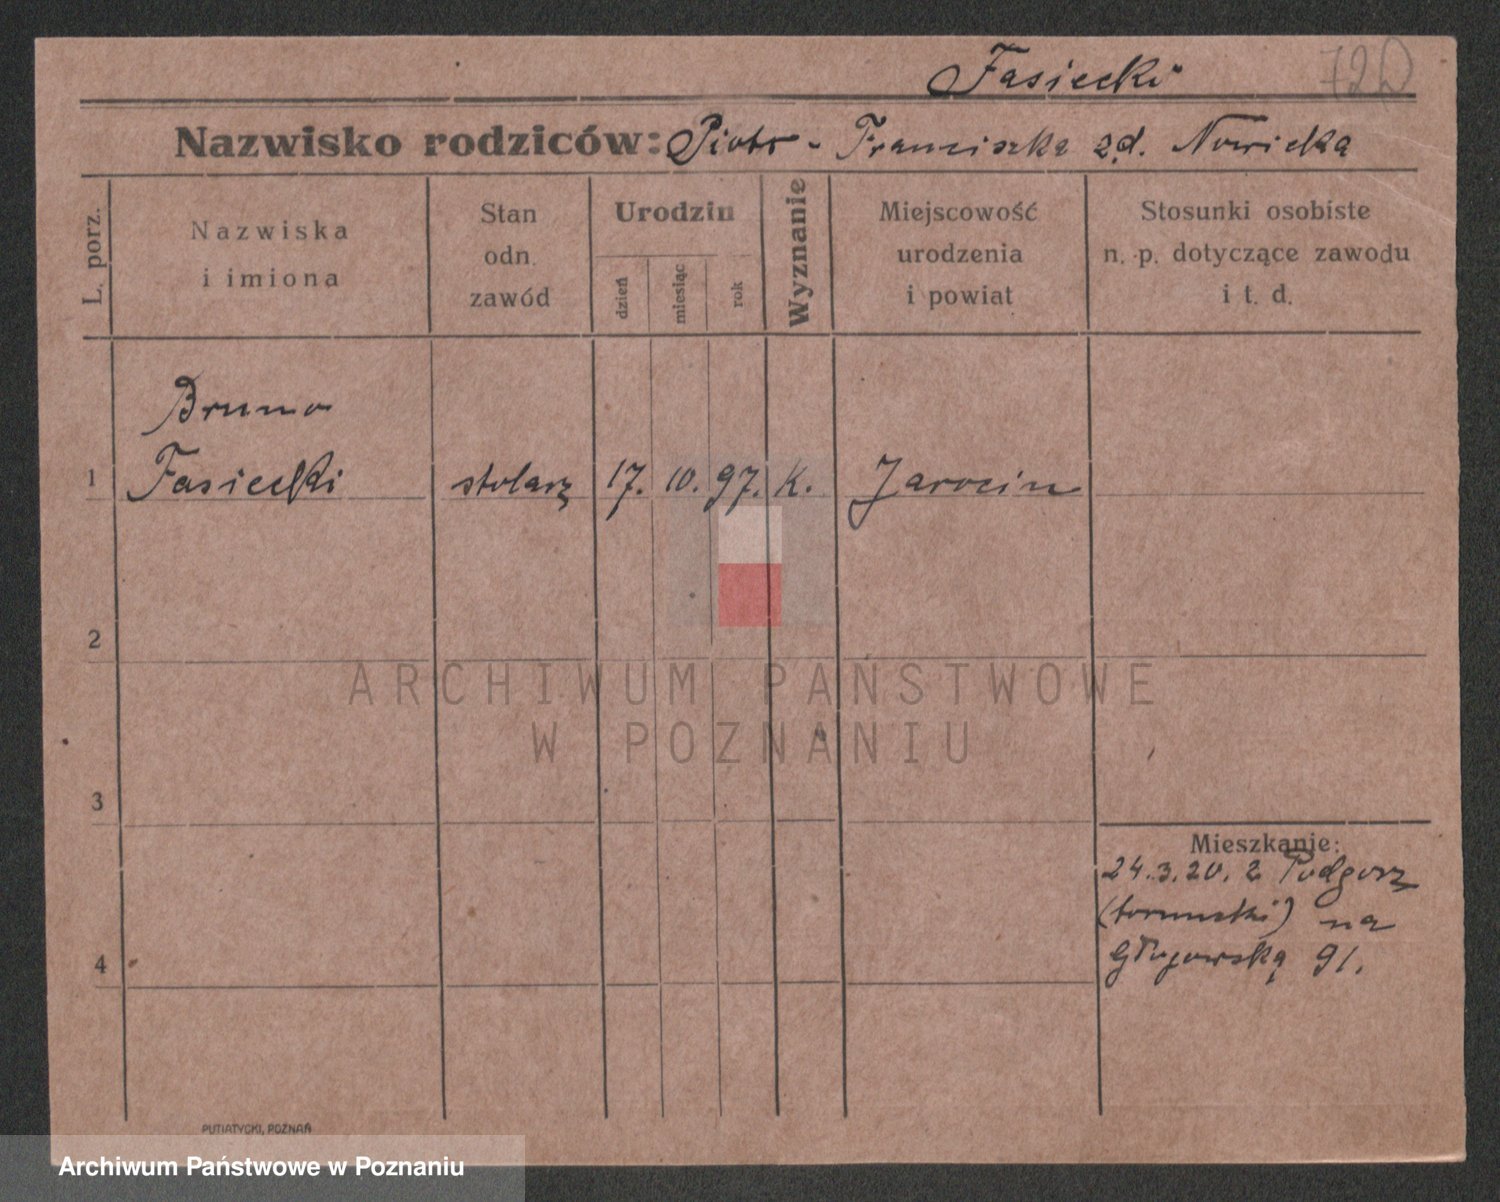 Fasiecki
72D
Nazwisko rodziców: Piotr - Franciszka z d. Nowicka
L. porz.
Nazwiska
i imiona
Stan
odn.
zawód
Urodzin
dzień
miesiąc
rok
Wyznanie
Miejscowość
urodzenia
i powiat
Stosunki osobiste
n. p. dotyczące zawodu
i t. d.
Bruno
1 Fasiecki stolarz 17. 10. 97. K. Jarocin
2
ARCHIWUM PAŃSTWOWE
W POZNANIU
3
Mieszkanie:
24.3.20. z Podgorz
(toruński) na
4
Głogowską 91.
PUTIATYCKI, POZNAŃ
Archiwum Państwowe w Poznaniu